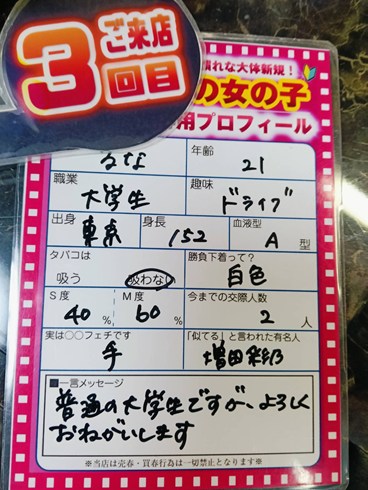 ご来店
3回目
慣れな大体新規!
の女の子
用プロフィール
るな 年齢 21
職業 大学生 趣味 ドライブ
出身 東京 身長 152 血液型 A型
タバコは 吸う 吸わない 勝負下着って? 白色
S度 40% M度 60% 今までの交際人数 2人
実は○○フェチです 手 「似てる」と言われた有名人 増田彩乃
■一言メッセージ
普通の大学生ですが、よろしく
おねがいします
※当店は売春・買春行為は一切禁止となります※